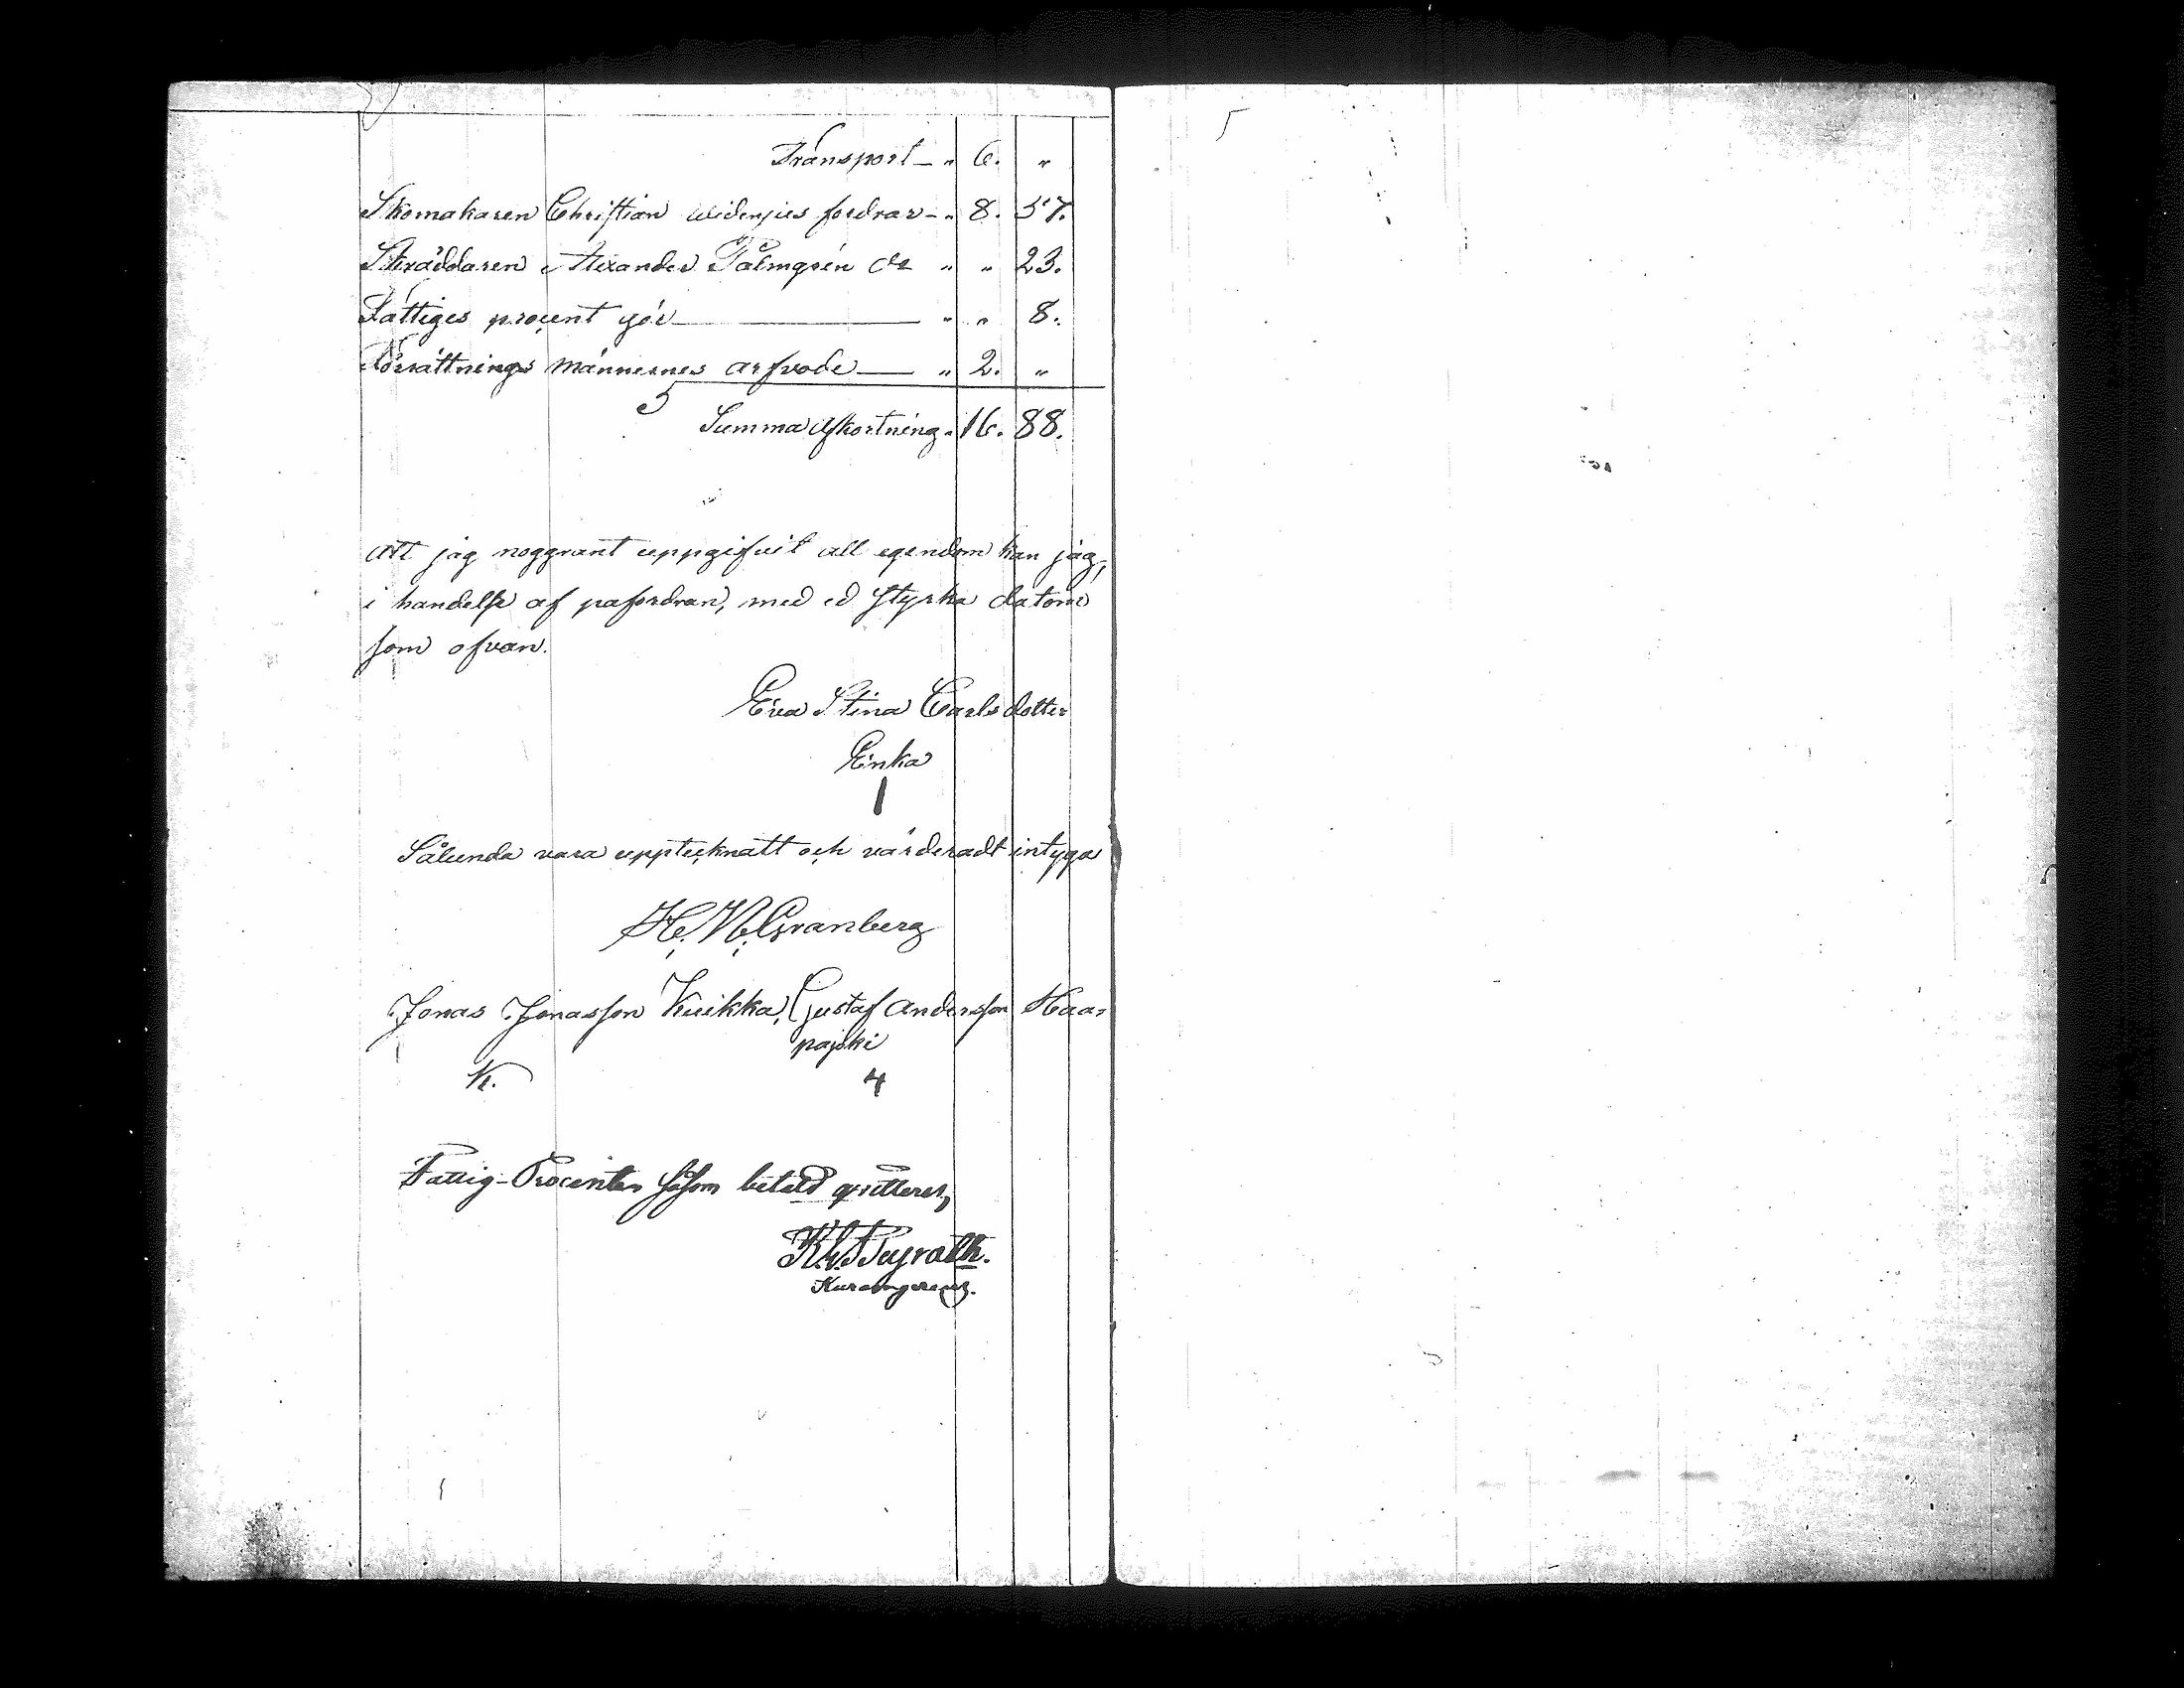 Transport — " 6. "
Skomakaren Christian Widenjies fordrar — " 8. 57.
Skräddaren Alexander Palmqrén do " " 23.
Fattiges procent gör — " " 8.
Förrättnings männernes arfvode — " 2. "
Summa Afkortning " 16. 88.
Att jag noggrant uppgifvit all egendom kan jag,
i handelse af pafordran, med ed styrka datom
som ofvan.
Eva Stina Carlsdotter
Enka
Sålunda vara upptecknatt och värderadt intyga
H. M. Granberg
Jonas Jonasson Kuikka, Gustaf Andersson Haa-
pajski
K. 4
Fattig-Procenten såsom betald qvitteras,